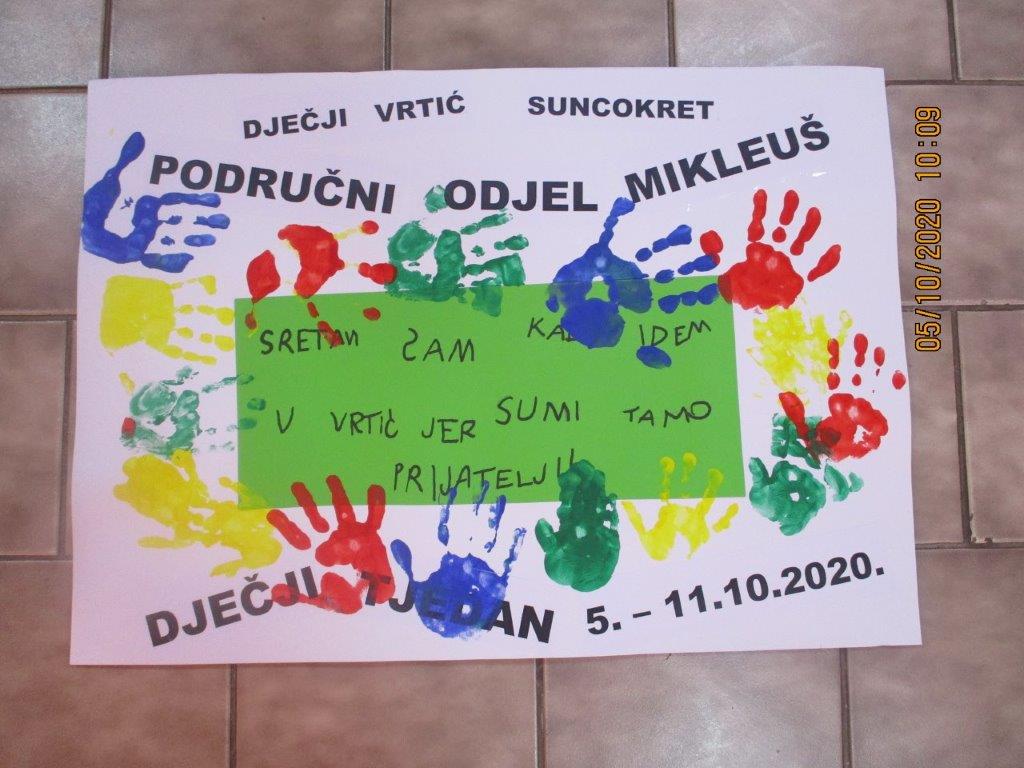 DJEČJI VRTIĆ SUNCOKRET
PODRUČNI ODJEL MIKLEUŠ
SRETAN SAM KAD IDEM
V VRTIĆ JER SUMI TAMO
PRIJATELJU
DJEČJI TJEDAN 5. – 11.10.2020.
05/10/2020 10:09